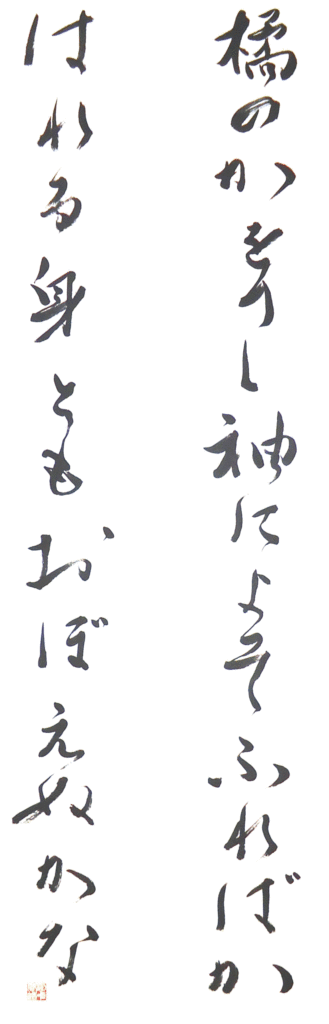 橘のかをりし袖によそふればか
はれる身ともおぼえぬかな